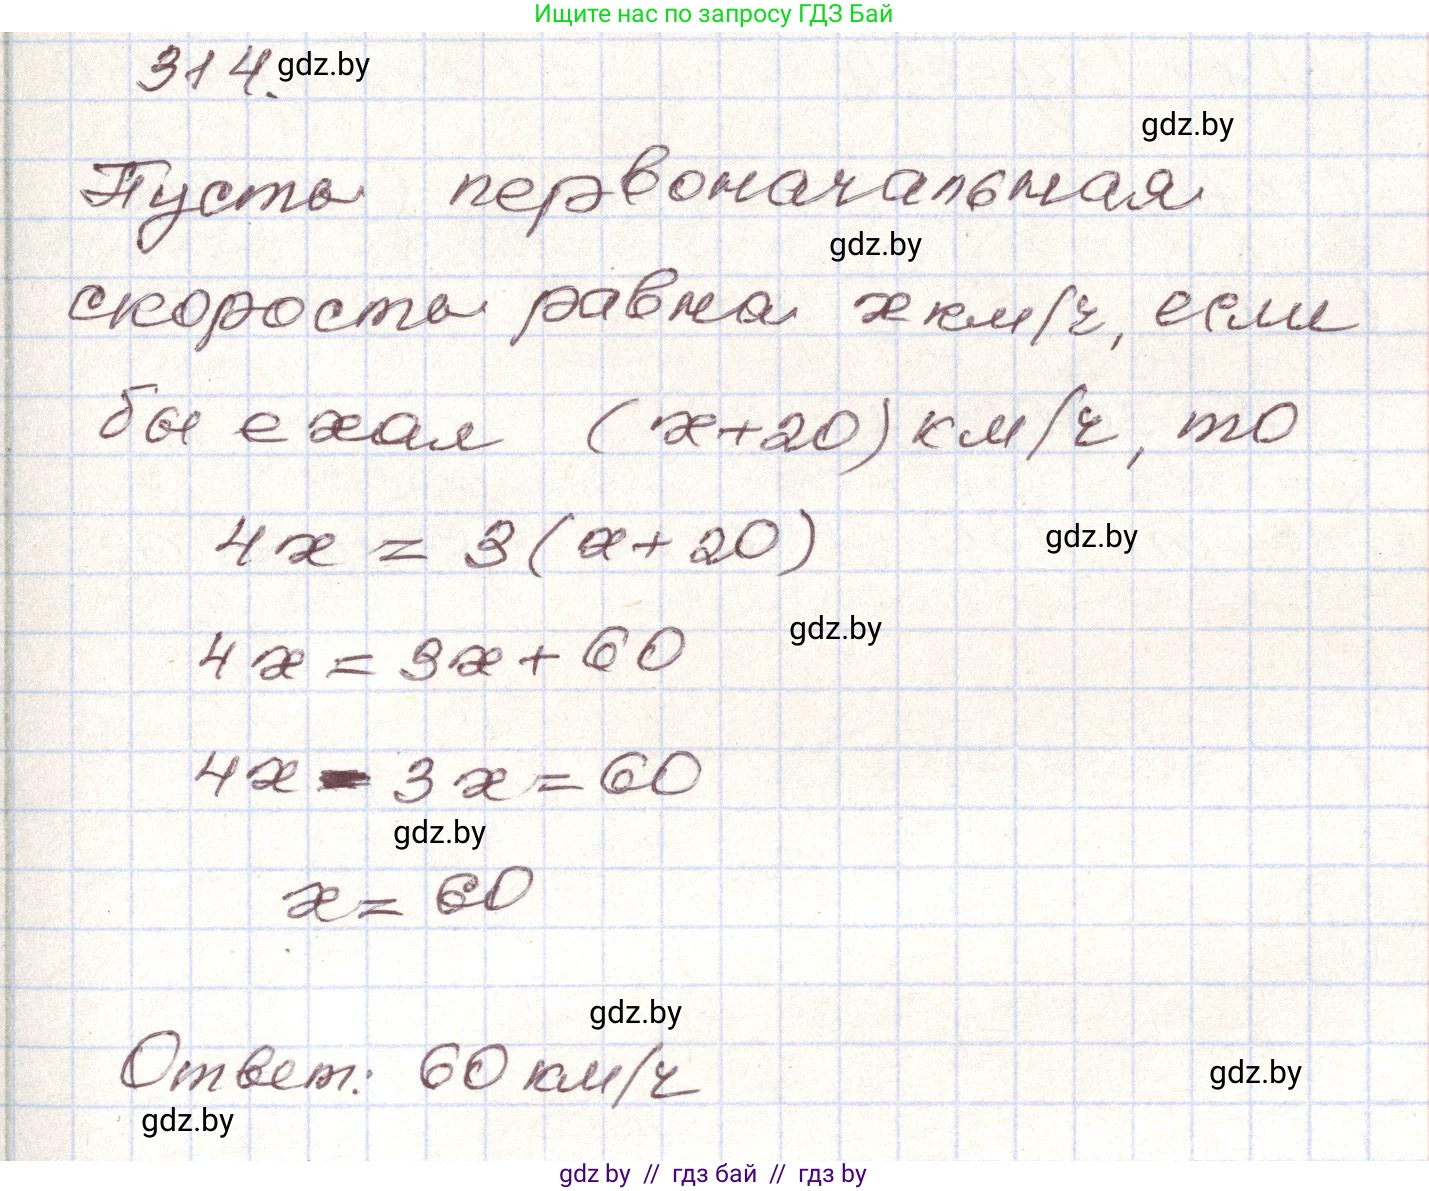 Ищите нас по запросу ГДЗ Бай
314. gdz.by
gdz.by
Пусть первоначальная
gdz.by
скорость равна x км/ч, если
бы ехал (x+20) км/ч, то
4x = 3(x+20)
gdz.by
gdz.by
4x = 3x + 60
4x - 3x = 60
gdz.by
x = 60
gdz.by
Ответ: 60 км/ч
gdz.by
gdz.by
gdz by // гдз бай // гдз by